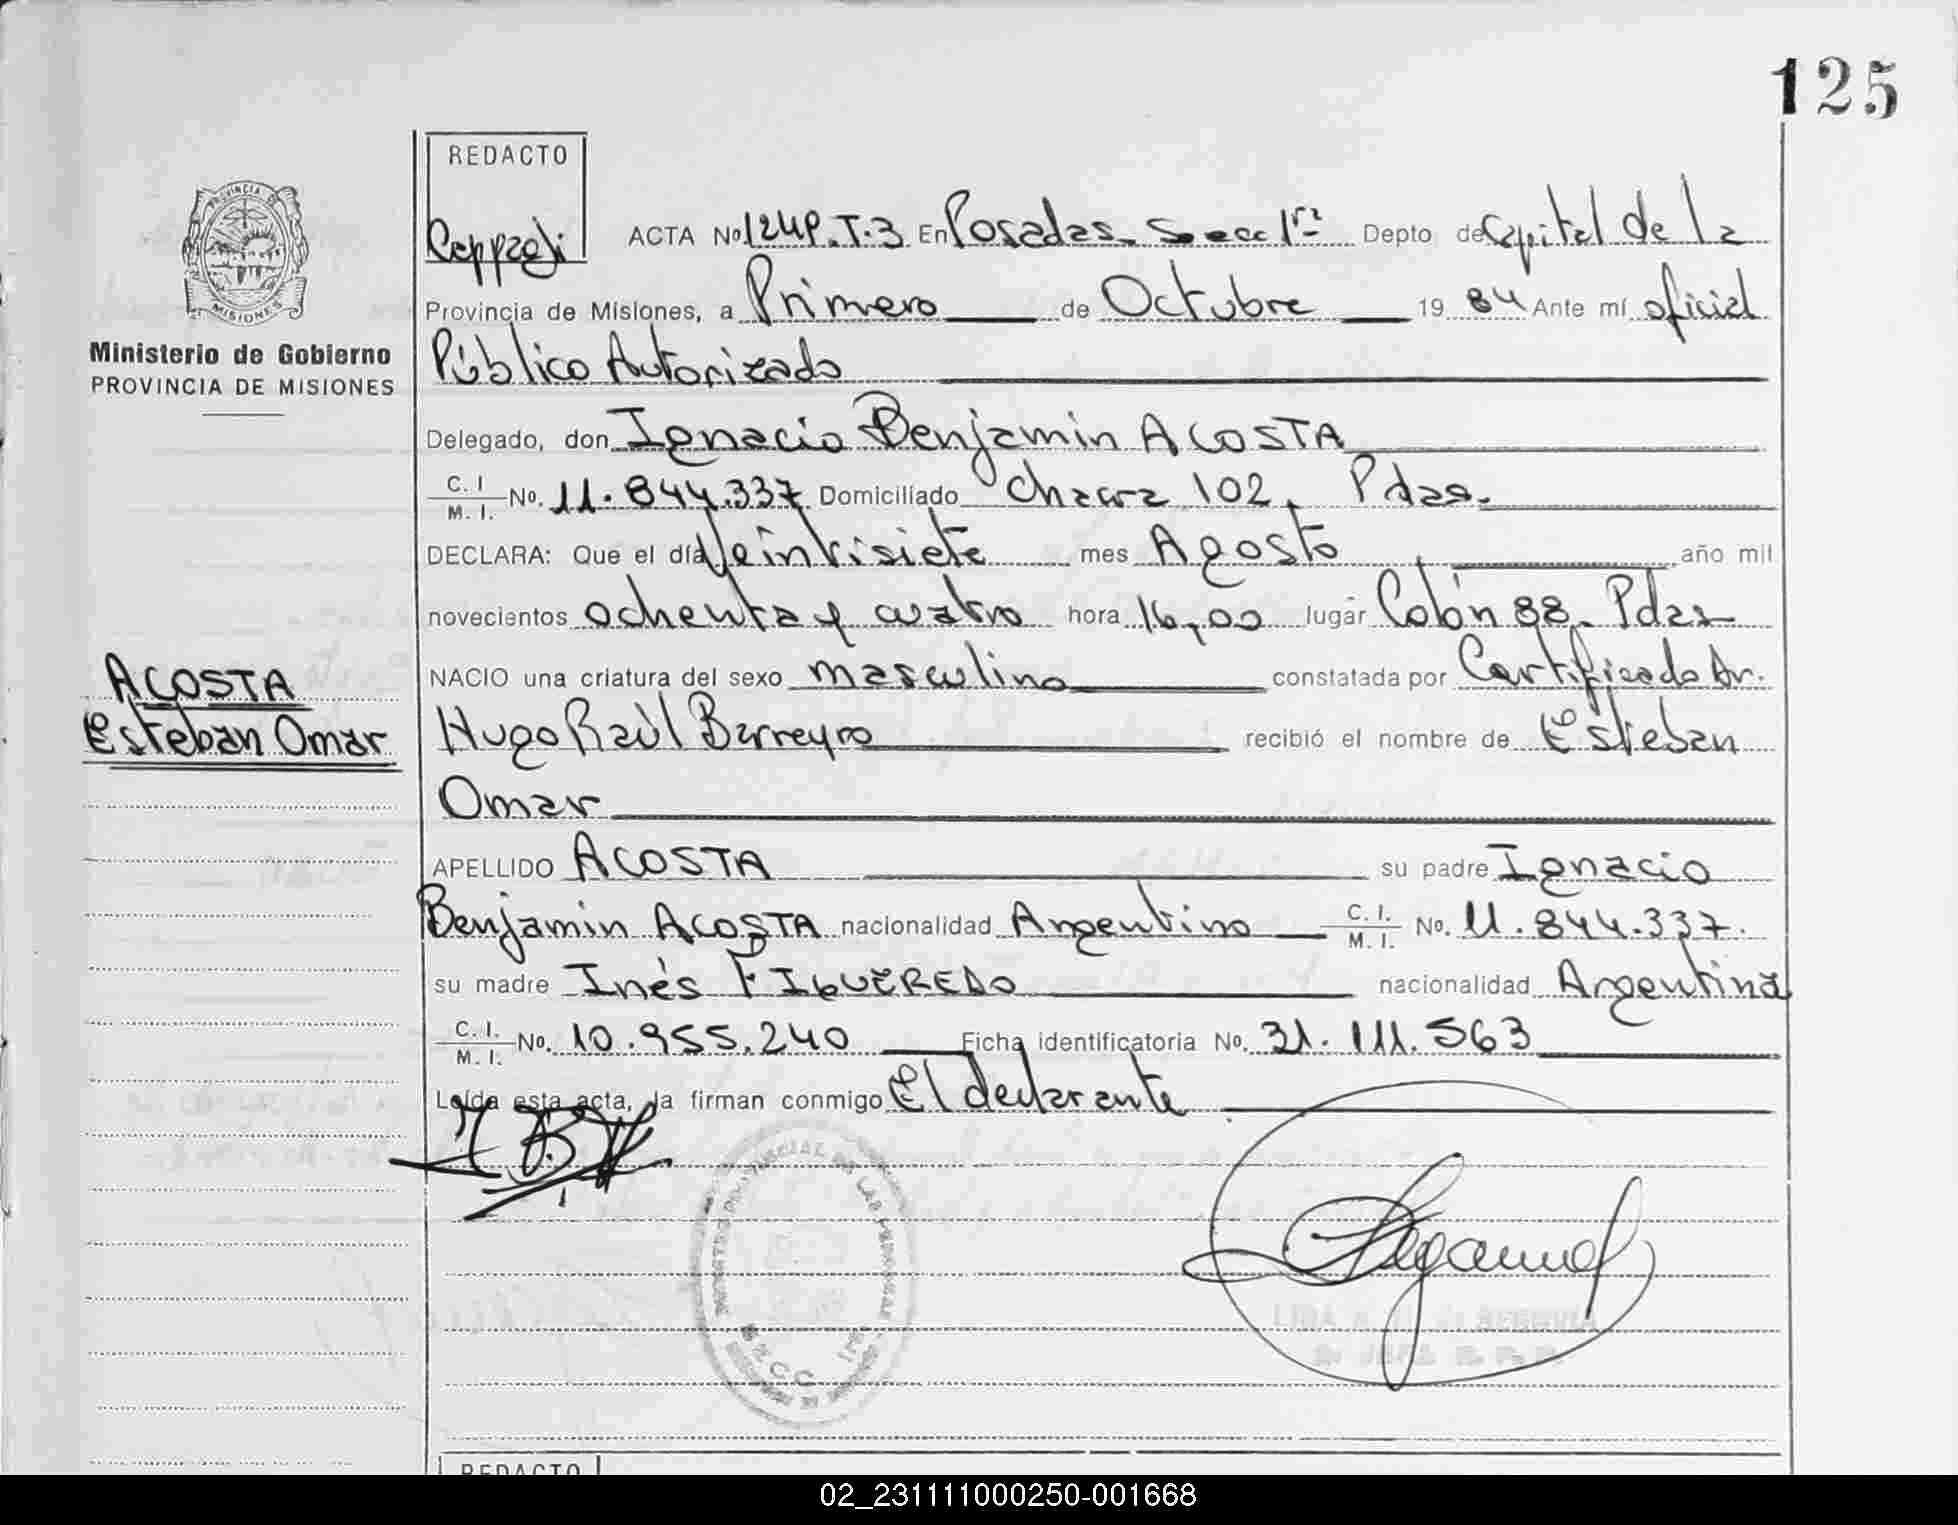 125
REDACTO
ACTA Nº 1249.T.3 En Posadas. Secc 1ra Depto de Capital de la
Provincia de Misiones, a Primero de Octubre 1984 Ante mí oficial
Público Autorizado
Delegado, don Ignacio Benjamin ACOSTA
C. I. M. I. Nº. 11.844.337 Domiciliado Chacra 102, Pdas.
DECLARA: Que el día Veintisiete mes Agosto año mil
novecientos ochenta y cuatro hora 16,00 lugar Colón 88. Pdas
NACIO una criatura del sexo masculino constatada por Certificado Dr.
Hugo Raúl Barreyro recibió el nombre de Esteban
Omar
APELLIDO ACOSTA su padre Ignacio
Benjamin ACOSTA nacionalidad Argentino C. I. M. I. Nº. 11.844.337.
su madre Inés FIGUEREDO nacionalidad Argentina
C. I. M. I. Nº. 10.955.240 Ficha identificatoria Nº. 31.111.563
Leída esta acta, la firman conmigo El declarante
PROVINCIA DE MISIONES
Ministerio de Gobierno
PROVINCIA DE MISIONES
ACOSTA
Esteban Omar
REDACTO
02_231111000250-001668